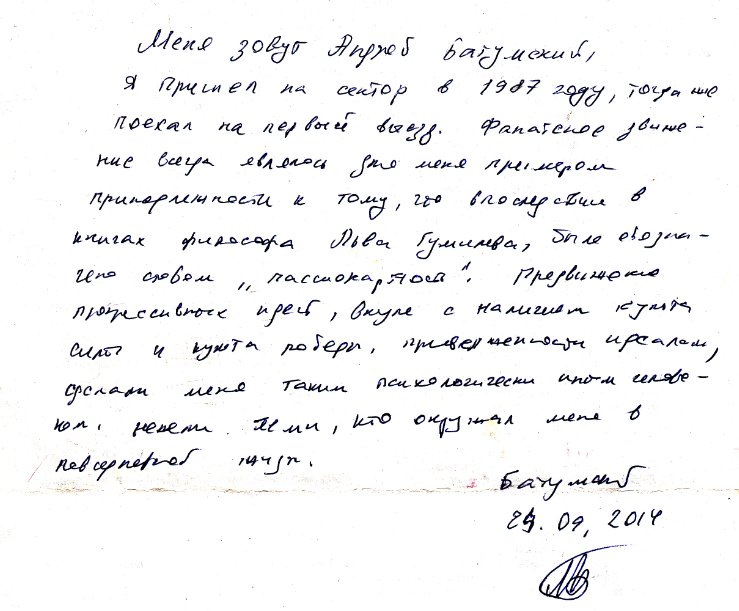 Меня зовут Андрей Батумский,
Я пришел на сектор в 1987 году, тогда же
поехал на первый выезд. Фанатское движе-
ние всегда являлось для меня примером
принадлежности к тому, что впоследствии в
книгах философа Льва Гумилева, было обозна-
чено словом „пассионарность". Продвижение
прогрессивных идей, вкупе с наличием культа
силы и культа победы, приверженности идеалам,
сделали меня таким психологически иным челове-
ком, нежели теми, кто окружал меня в
повседневной жизни.
Батумский
29.09, 2014